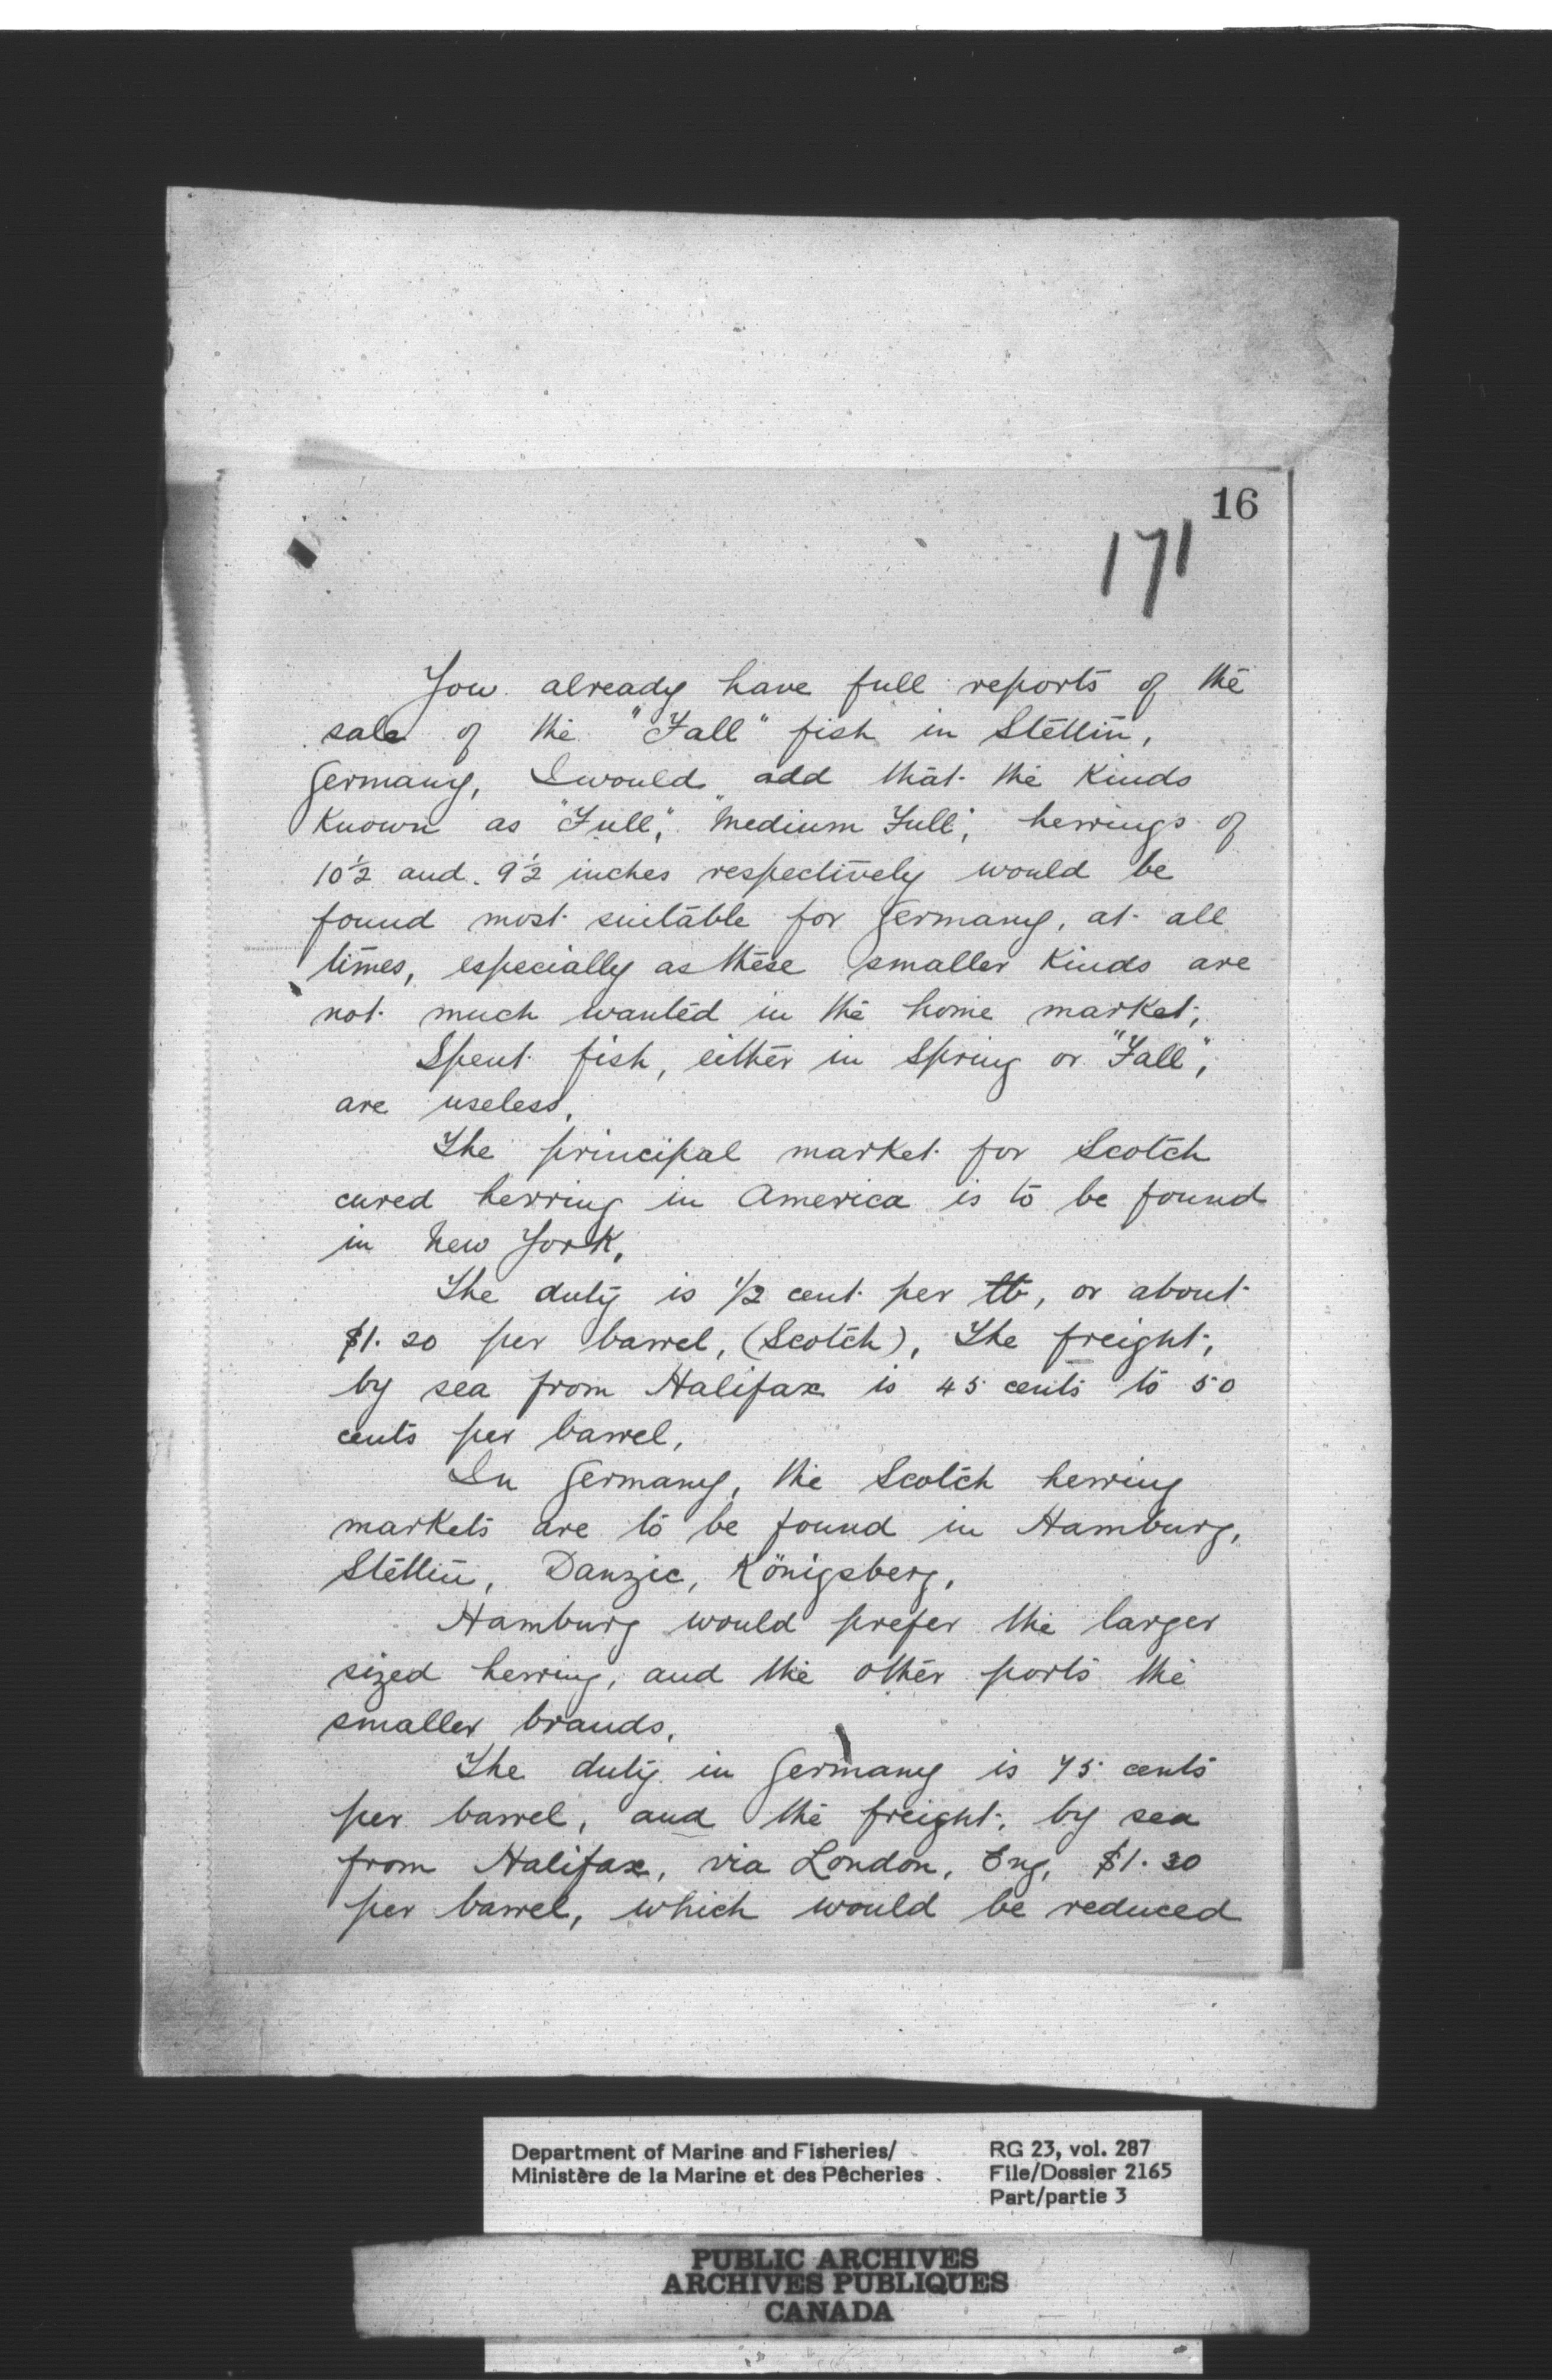 16
171
You already have full reports of the
sale of the "Fall" fish in Stettin,
Germany, I would add that the kinds
known as "Full", "Medium Full", herrings of
10½ and 9½ inches respectively would be
found most suitable for Germany, at all
times, especially as these smaller kinds are
not much wanted in the home market,
Spent fish, either in Spring or "Fall",
are useless.
The principal market for Scotch
cured herring in America is to be found
in New York.
The duty is 1/2 cent per lb, or about
$1.20 per barrel, (Scotch), The freight,
by sea from Halifax is 45 cents to 50
cents per barrel.
In Germany, the Scotch herring
markets are to be found in Hamburg,
Stettin, Danzic, Königsberg.
Hamburg would prefer the larger
sized herring, and the other ports the
smaller brands.
The duty in Germany is 75 cents
per barrel, and the freight, by sea
from Halifax, via London, Eng, $1.30
per barrel, which would be reduced
Department of Marine and Fisheries/
Ministère de la Marine et des Pêcheries
RG 23, vol. 287
File/Dossier 2165
Part/partie 3
PUBLIC ARCHIVES
ARCHIVES PUBLIQUES
CANADA